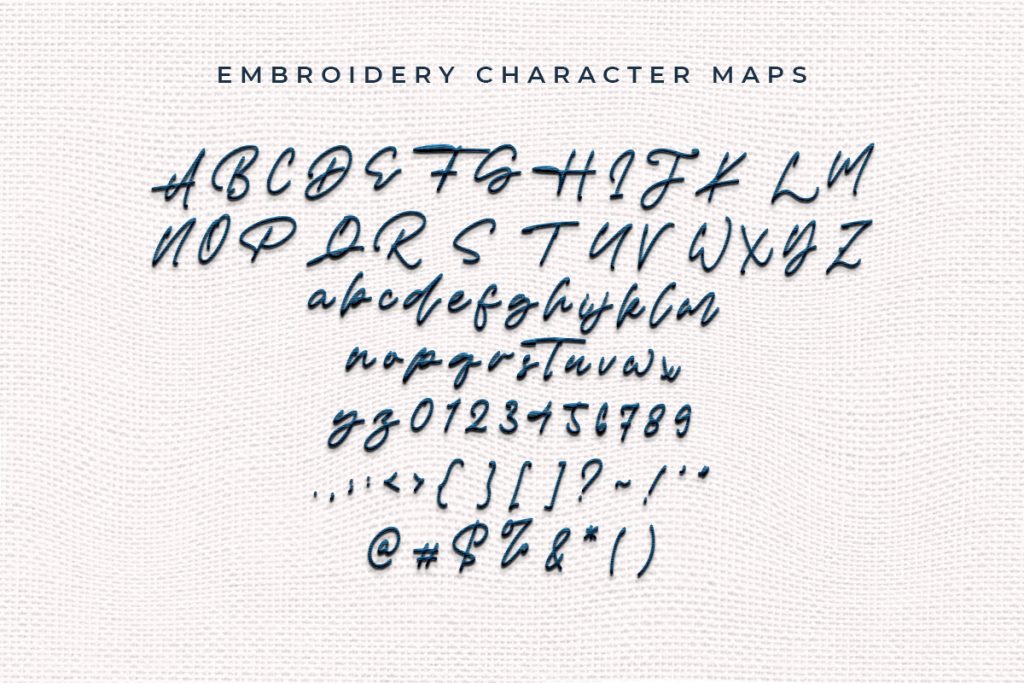 EMBROIDERY CHARACTER MAPS
A B C D E F G H I J K L M
N O P Q R S T U V W X Y Z
a b c d e f g h i j k l m
n o p q r s t u v w x
y z 0 1 2 3 4 5 6 7 8 9
. , ; : < > { } [ ] ? ~ ! ' "
@ # $ % & * ( )